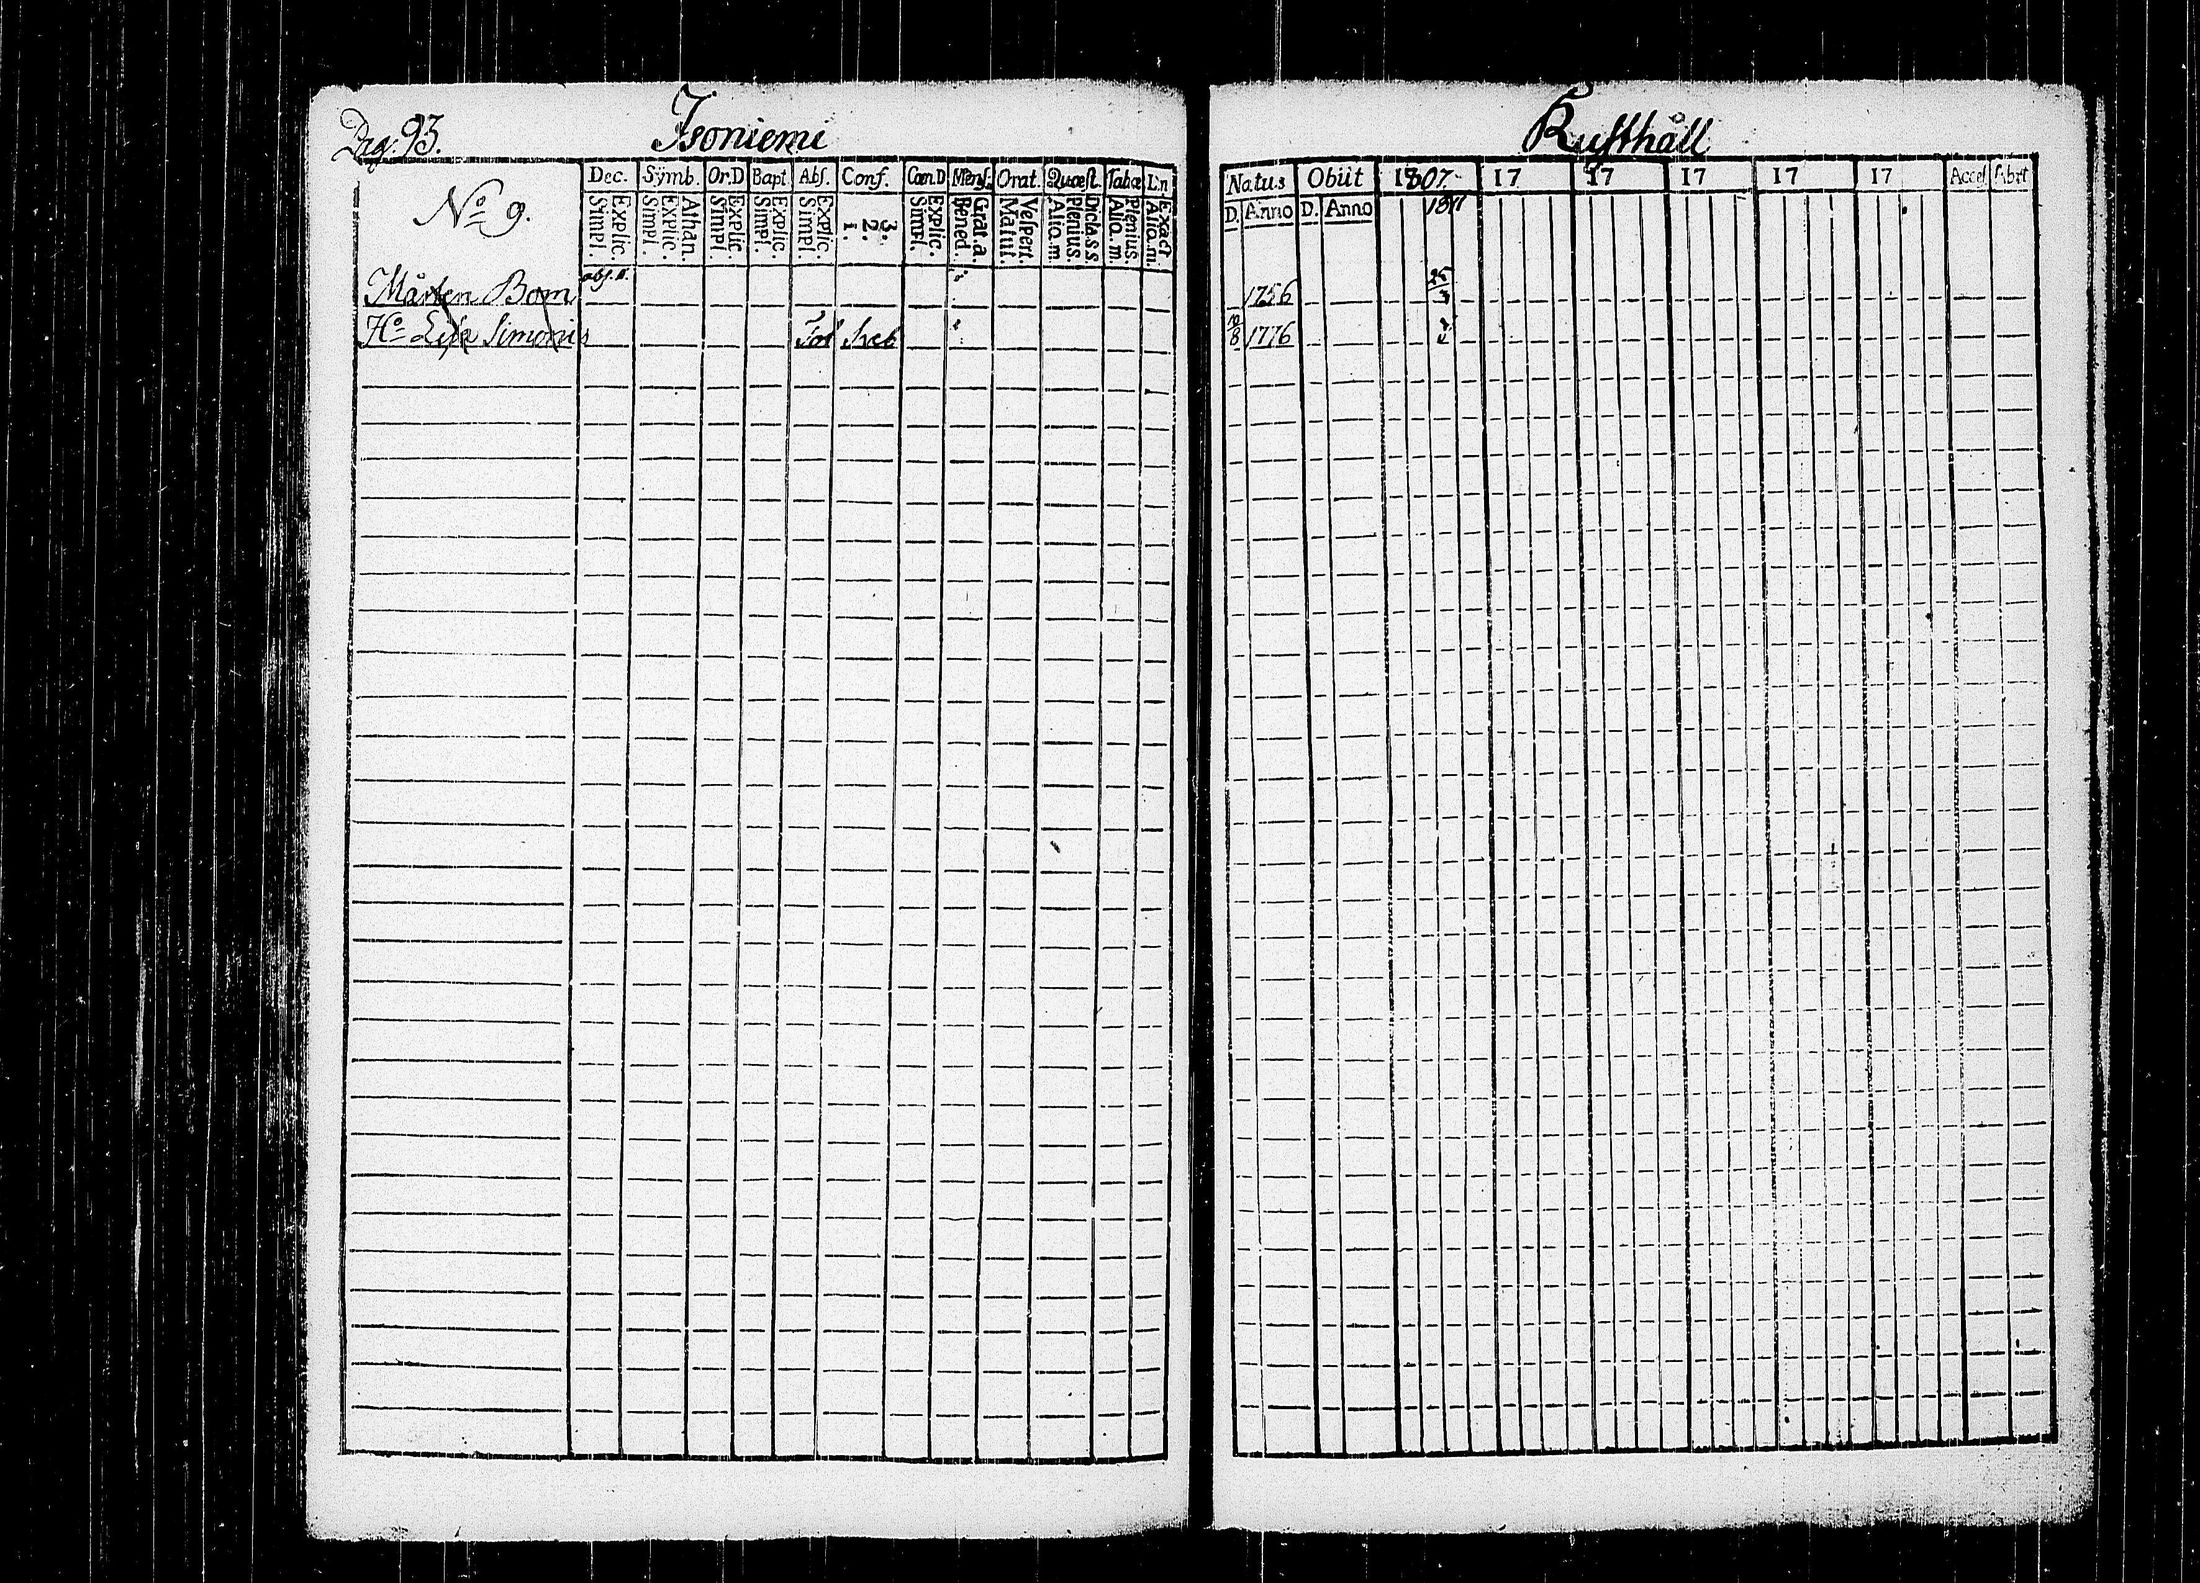 Pag. 93. Isoniemi
No 9.
Dec. Symb. Or.D Bapt. Abs. Conf. Cœn.D Mens. Orat. Quæst. Tabœ
Explic. Simpl. Athan. Explic. Simpl. Explic. Simpl. Explic. Simpl. Explic. Simpl. 3. 2. 1. Explic. Simpl. Grat.a. Bened. Vespert. Matut. Dicta.s.s. Plenius. Alio.m. Plenius. Alio.m. Exact Alio.m.
Mårten Bom
Ho Lisa Simonis
Rusthåll
Natus Obiit 1807 17 17 17 17 17 Acces Abiit
D. Anno D. Anno 1811
1756
10/8 1776